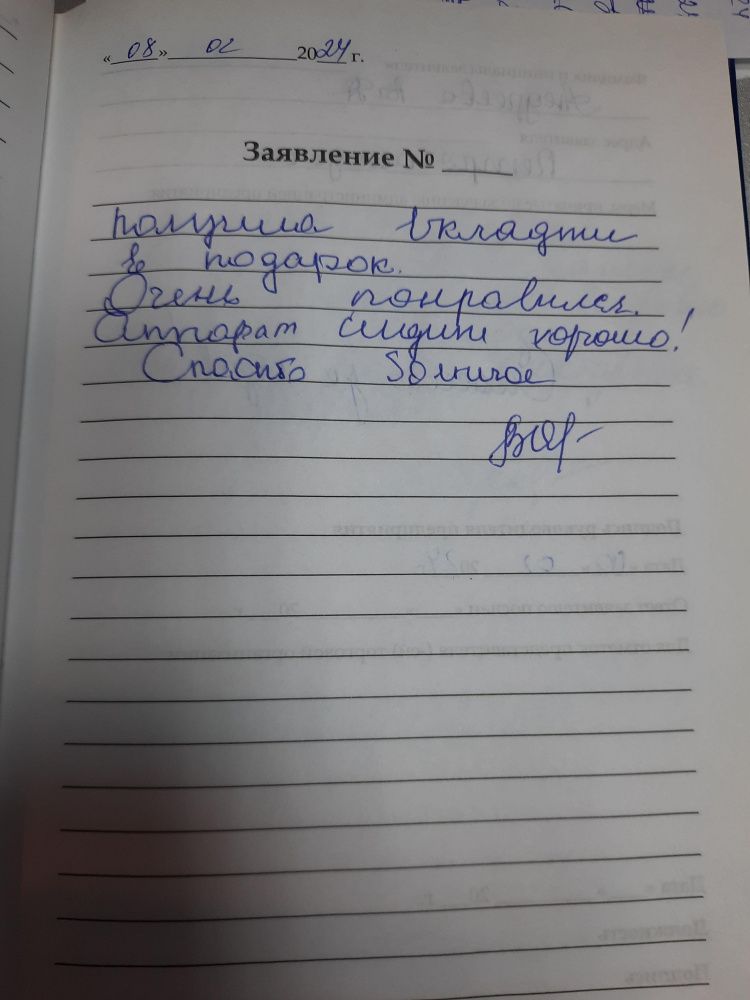 « 08 » 02 2024 г.
Заявление № ____
получила вкладыши
в подарок.
Очень понравился.
Аппарат сидит хорошо!
Спасибо большое